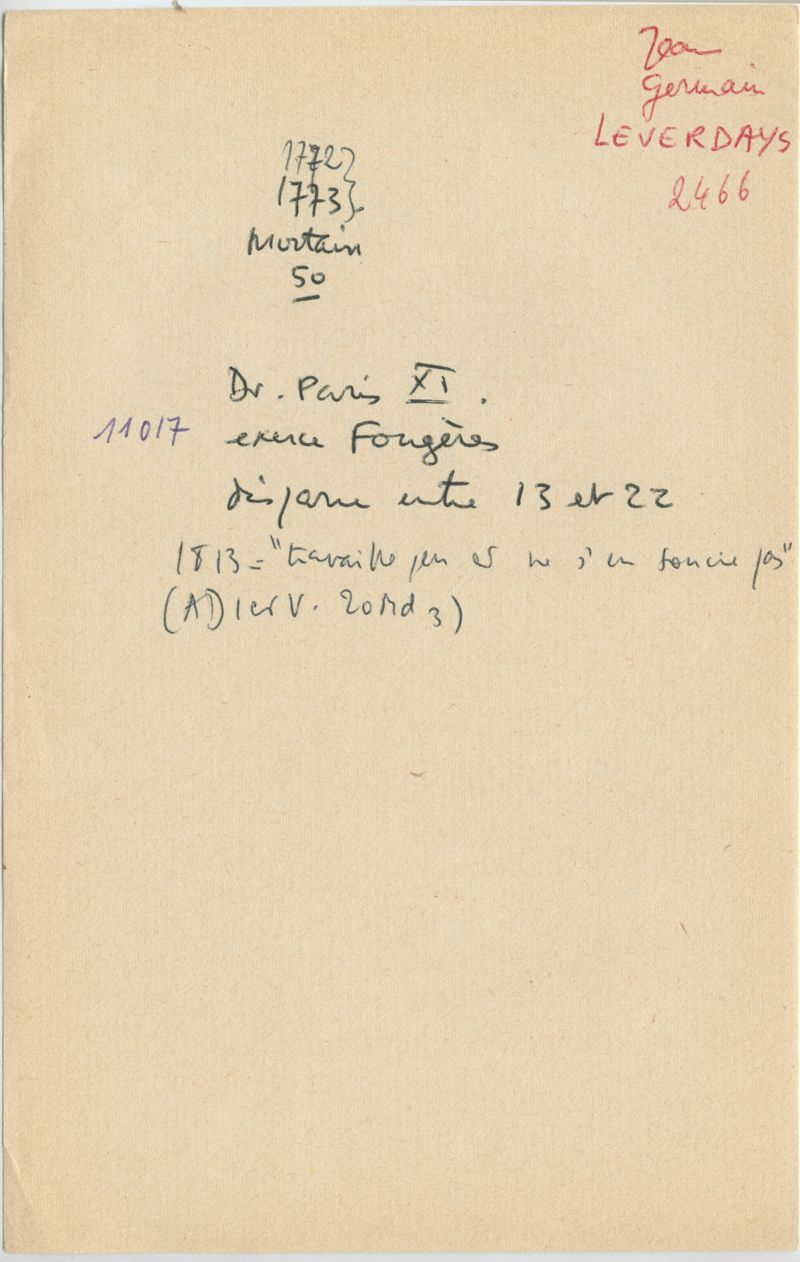 Jean
Germain
LEVERDAYS
2466
1772}
1773}.
Mortain
50
Dr. Paris XI.
11017 exerce Fougères
disparu entre 13 et 22
1813 = "travaille peu et ne s'en soucie pas"
(AD I et V. 20Md3)